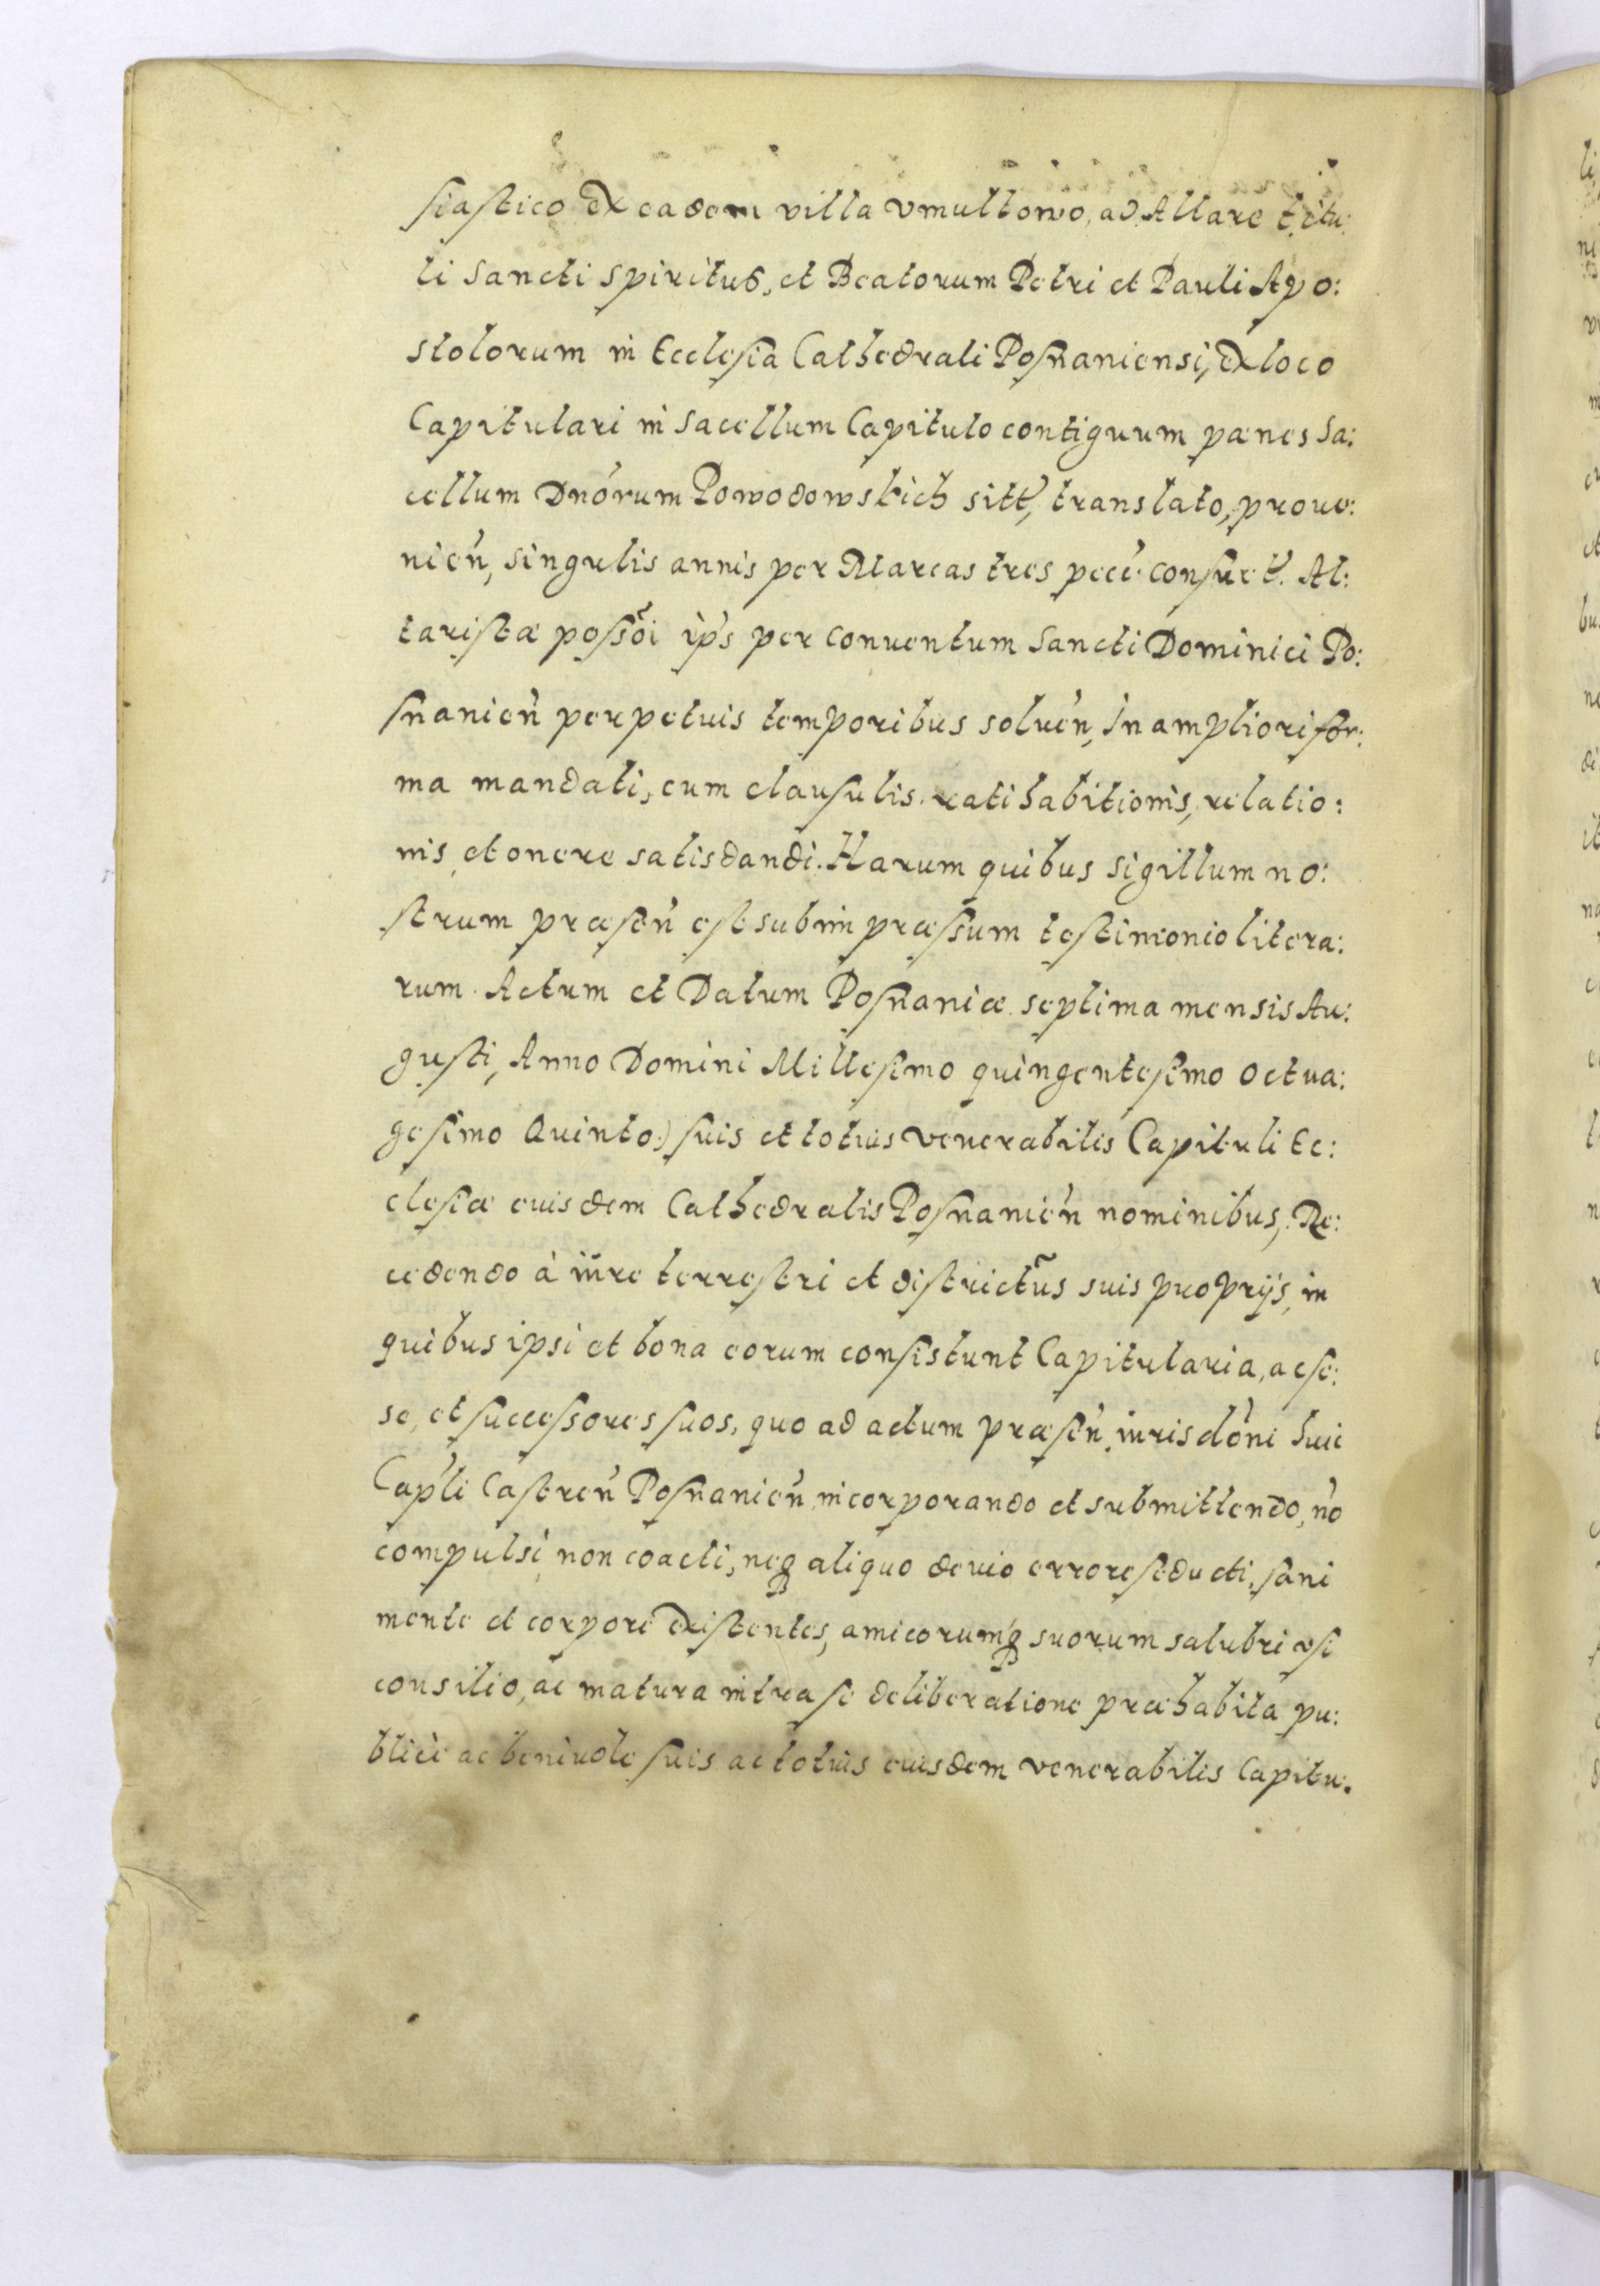 siastico ex eadem villa Vmultowo, ad Altare titu:
li Sancti Spiritus, et Beatorum Petri et Pauli Apo:
stolorum in Ecclesia Cathedrali Posnaniensi, ex loco
Capitulari in Sacellum Capitulo contiguum paenes Sa:
cellum Dnorum Powodowskich sitt, translato, proue:
nien, singulis annis per Marcas tres pece consuet. Al:
taristae possoi ips per Conuentum Sancti Dominici Po:
snanien perpetuis temporibus soluen, In ampliori for:
ma mandati, cum clausulis ratihabitionis, relatio:
nis, et onere satisdandi. Harum quibus Sigillum no:
strum praesen est subimpraessum testimonio litera:
rum. Actum et Datum Posnaniae septima mensis Au:
gusti, Anno Domini Millesimo quingentesimo octua:
gesimo Quinto:) suis et totius venerabilis Capituli Ec:
clesiae eiusdem Cathedralis Posnanien nominibus, Re:
cedendo à iure terrestri et districtus suis proprijs, in
quibus ipsi et bona eorum consistunt Capitularia, ac se:
se, et successores suos, quo ad actum praesen, iurisdoni huic
Capli Castren Posnanien, incorporando et submittendo, no
compulsi, non coacti, neq aliquo deuio errore seducti, sani
mente et corpore existentes, amicorumq suorum salubri vsi
consilio, ac matura intra se deliberatione praehabita pu:
blicè ac beniuole suis ac totius eiusdem venerabilis Capitu.